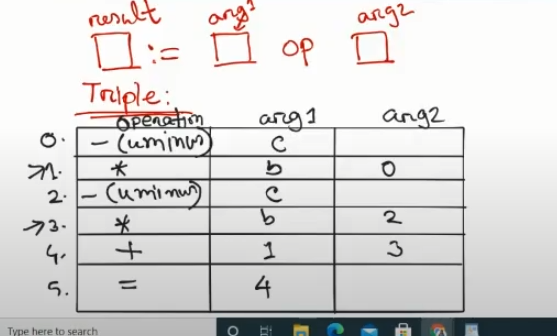 result arg1 arg2
:= op
Triple:
operation arg1 arg2
0. - (uminus) c
1. * b 0
2. - (uminus) c
3. * b 2
4. + 1 3
5. = 4
Type here to search